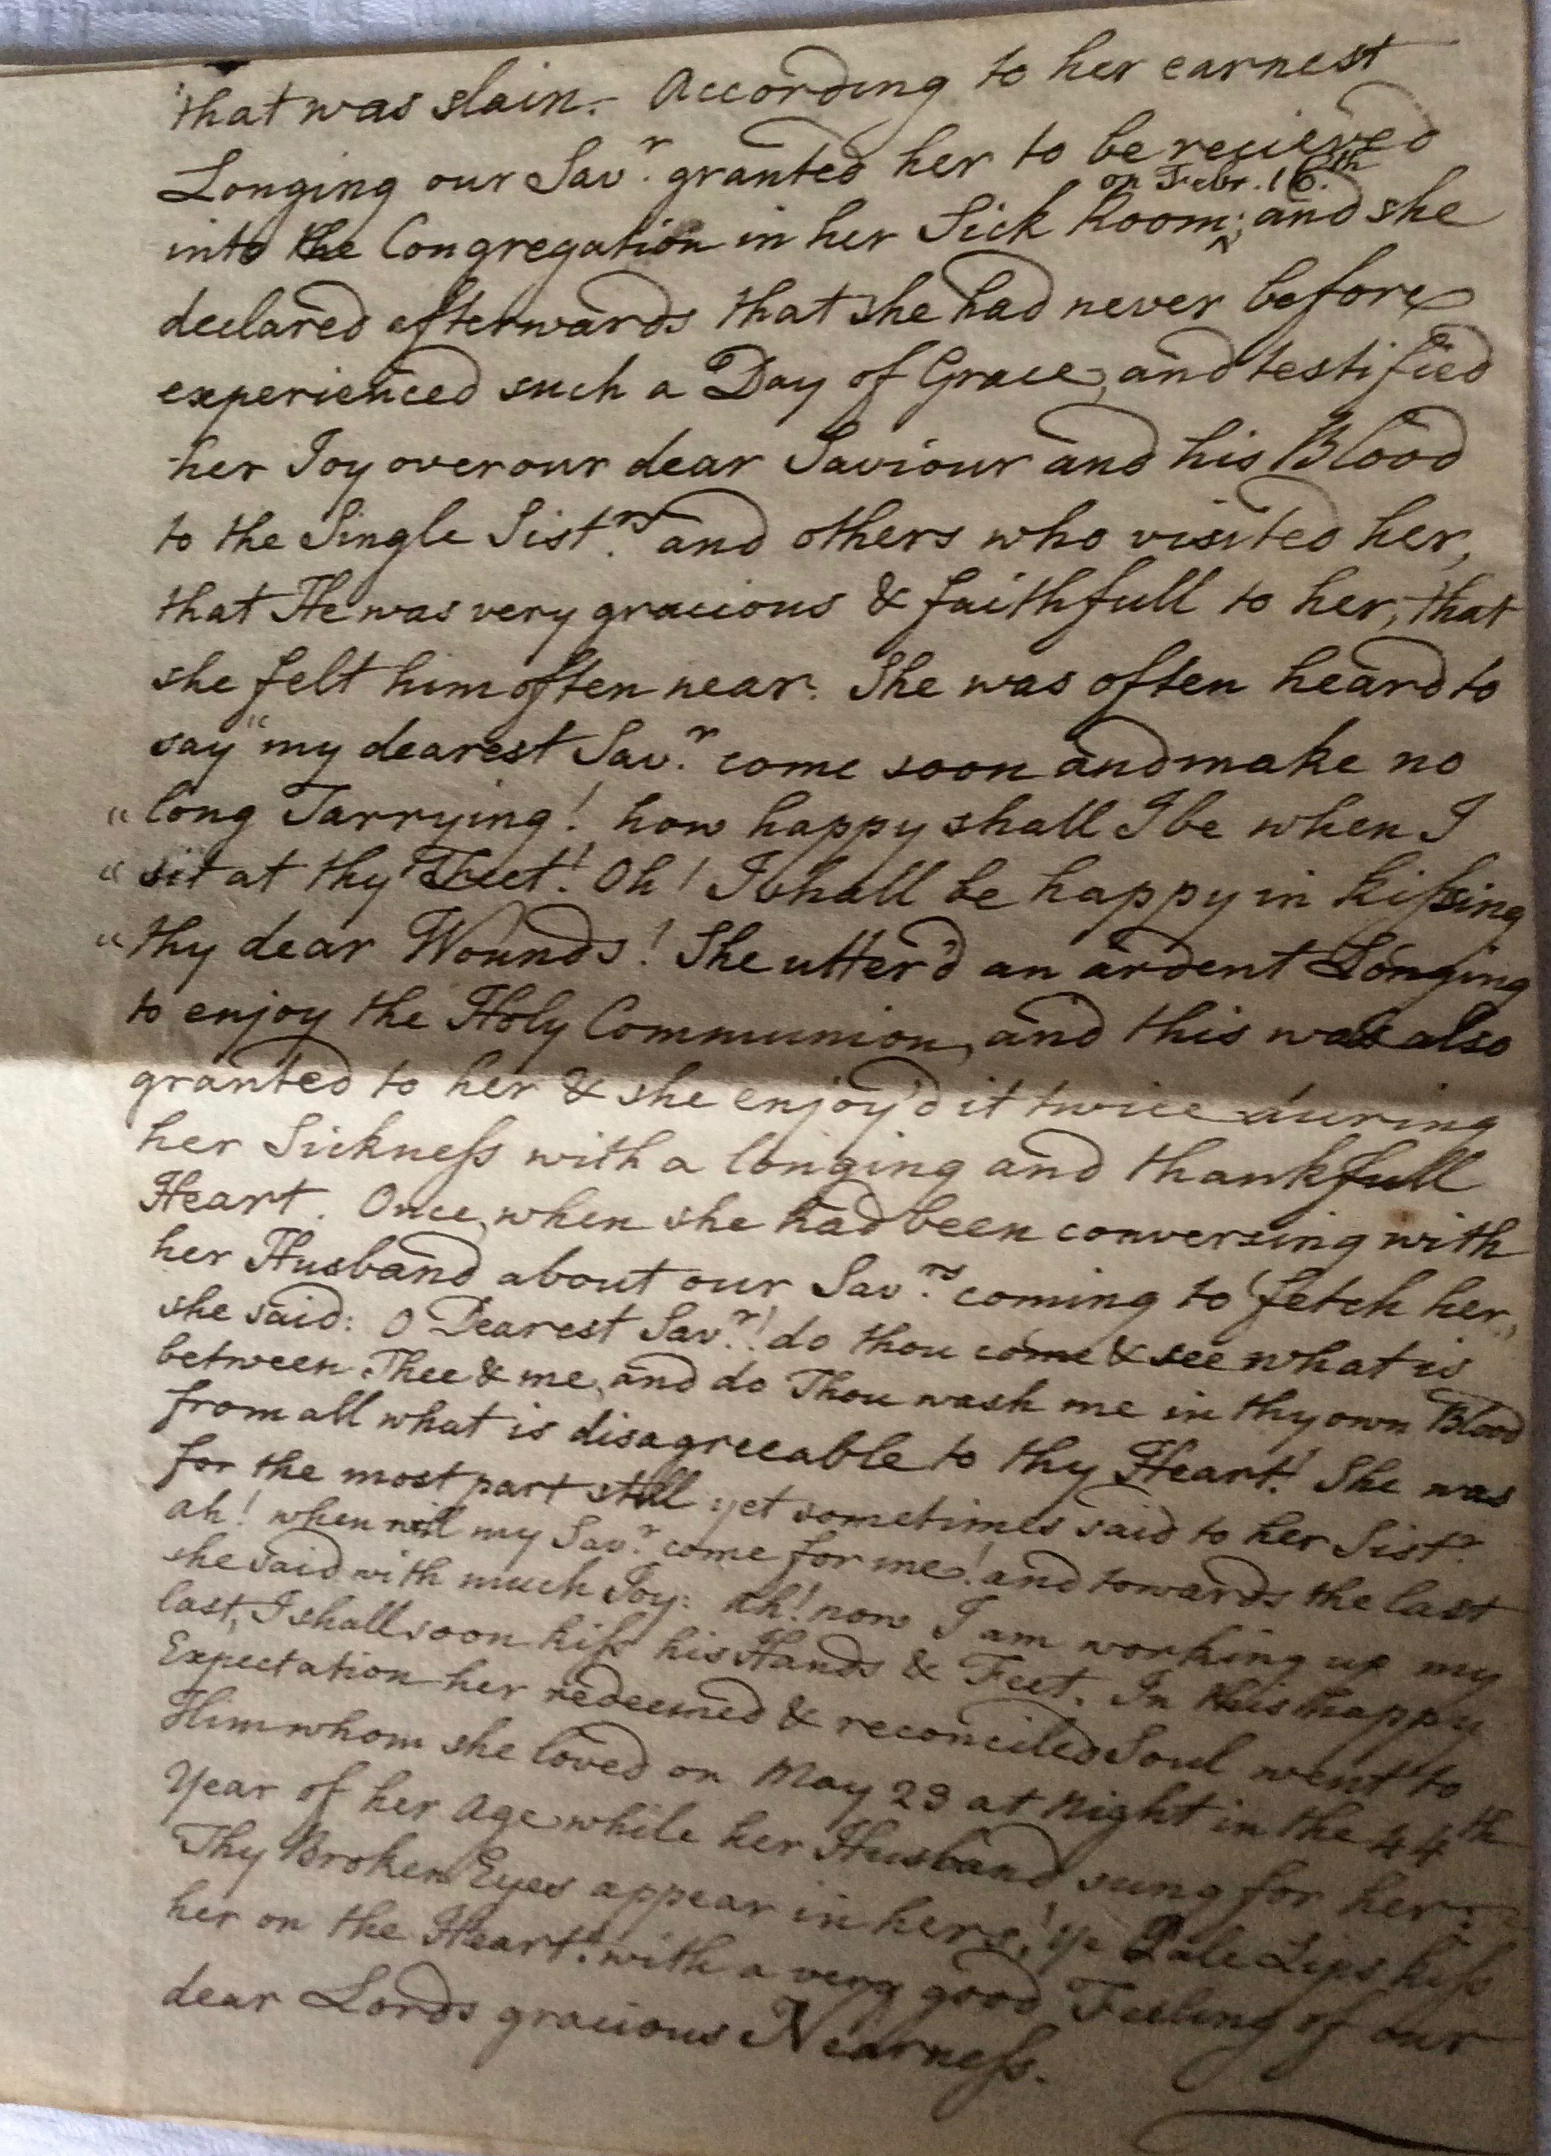 that was slain. According to her earnest
Longing our Sav.r granted her to be recieved
on Febr. 16.th
into the Congregation in her Sick Room; and she
declared afterwards that she had never before
experienced such a Day of Grace, and testified
her Joy over our dear Saviour and his Blood
to the Single Sist.rs and others who visited her,
that He was very gracious & faithfull to her, that
she felt him often near. She was often heard to
say "my dearest Sav.r come soon and make no
"long Tarrying! how happy shall I be when I
"sit at thy Feet! Oh! I shall be happy in kissing
"thy dear Wounds! She utter'd an ardent Longing
to enjoy the Holy Communion, and this was also
granted to her & she enjoy'd it twice during
her Sickness with a longing and thankfull
Heart. Once, when she had been conversing with
her Husband about our Sav.rs coming to fetch her,
she said: O Dearest Sav.r! do thou come & see what is
between Thee & me, and do Thou wash me in thy own Blood
from all what is disagreeable to thy Heart! She was
for the most part still yet sometimes said to her Sist.r
ah! when will my Sav.r come for me! and towards the last
she said with much Joy: Ah! now I am working up my
last, I shall soon kiss his Hands & Feet. In this happy
Expectation her redeemed & reconciled Soul went to
Him whom she loved on May 23 at Night in the 44th
Year of her Age while her Husband sung for her:
Thy Broken Eyes appear in hers! ye Pale Lips kiss
her on the Heart! with a very good Feeling of our
dear Lords gracious Nearness.